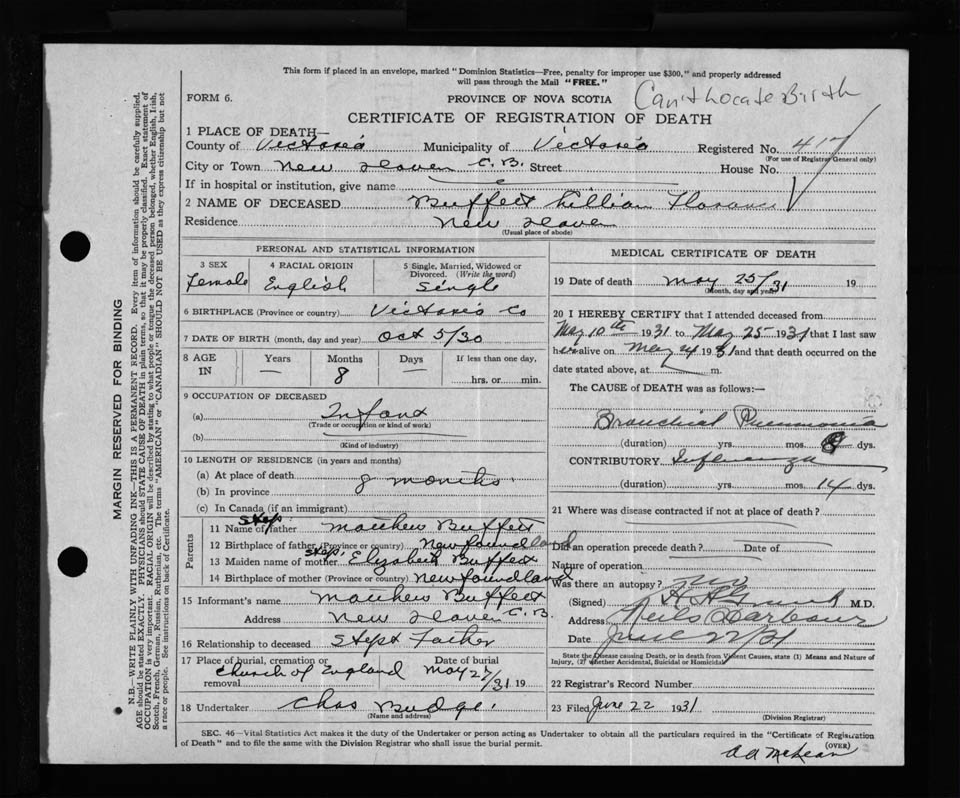 This form if placed in an envelope, marked "Dominion Statistics—Free, penalty for improper use $300," and properly addressed
will pass through the Mail "FREE."
FORM 6.
PROVINCE OF NOVA SCOTIA
Can't Locate Birth
CERTIFICATE OF REGISTRATION OF DEATH
1 PLACE OF DEATH—
County of Victoria Municipality of Victoria Registered No. 417
(For use of Registrar General only)
City or Town New Haven C.B. Street House No.
If in hospital or institution, give name
2 NAME OF DECEASED Buffett Lillian Florance
Residence New Haven
(Usual place of abode)
PERSONAL AND STATISTICAL INFORMATION
3 SEX
Female
4 RACIAL ORIGIN
English
5 Single, Married, Widowed or
Divorced. (Write the word)
Single
6 BIRTHPLACE (Province or country) Victoria Co
7 DATE OF BIRTH (month, day and year) Oct 5/30
8 AGE
IN
Years
—
Months
8
Days
—
If less than one day,
hrs. or min.
9 OCCUPATION OF DECEASED
(a) Infant
(Trade or occupation or kind of work)
(b)
(Kind of industry)
10 LENGTH OF RESIDENCE (in years and months)
(a) At place of death 8 months
(b) In province
(c) In Canada (if an immigrant)
Parents
11 Name of Step father Matthew Buffett
12 Birthplace of father (Province or country) Newfoundland
13 Maiden name of Step mother Elizabeth Buffett
14 Birthplace of mother (Province or country) Newfoundland
15 Informant's name Matthew Buffett
Address New Haven C.B.
16 Relationship to deceased Stept Father
17 Place of burial, cremation or
removal
Church of England
Date of burial
May 27/31 19
18 Undertaker Chas Budge
(Name and address)
MEDICAL CERTIFICATE OF DEATH
19 Date of death May 25/31 19
(Month, day and year)
20 I HEREBY CERTIFY that I attended deceased from
May 10th 1931 to May 25 1931 that I last saw
her alive on May 24 1931 and that death occurred on the
date stated above, at m.
The CAUSE of DEATH was as follows:—
Bronchial Pneumonia
(duration) yrs. mos. 8 dys.
CONTRIBUTORY Influenza
(duration) yrs. mos. 14 dys.
21 Where was disease contracted if not at place of death?
Did an operation precede death? Date of
Nature of operation
Was there an autopsy? no
(Signed) M.D.
Address Neils Harbour
Date June 22/31
State the Disease causing Death, or in death from Violent Causes, state (1) Means and Nature of
Injury, (2) whether Accidental, Suicidal or Homicidal
22 Registrar's Record Number
23 Filed June 22 1931
(Division Registrar)
SEC. 46—Vital Statistics Act makes it the duty of the Undertaker or person acting as Undertaker to obtain all the particulars required in the "Certificate of Registration
of Death" and to file the same with the Division Registrar who shall issue the burial permit.
(OVER)
A A McLean
MARGIN RESERVED FOR BINDING
N.B.—WRITE PLAINLY WITH UNFADING INK—THIS IS A PERMANENT RECORD. Every item of information should be carefully supplied.
AGE should be stated EXACTLY. PHYSICIANS should STATE CAUSE OF DEATH in plain terms, so that it may be properly classified. Exact statement of
OCCUPATION is very important. RACIAL ORIGIN will be described by stating to what people or tongue the deceased person belonged, whether English, Irish,
Scotch, French, German, Russian, Ruthenian, etc. The terms "AMERICAN" or "CANADIAN" SHOULD NOT BE USED as they express citizenship but not
a race or people. See instructions on back of Certificate.